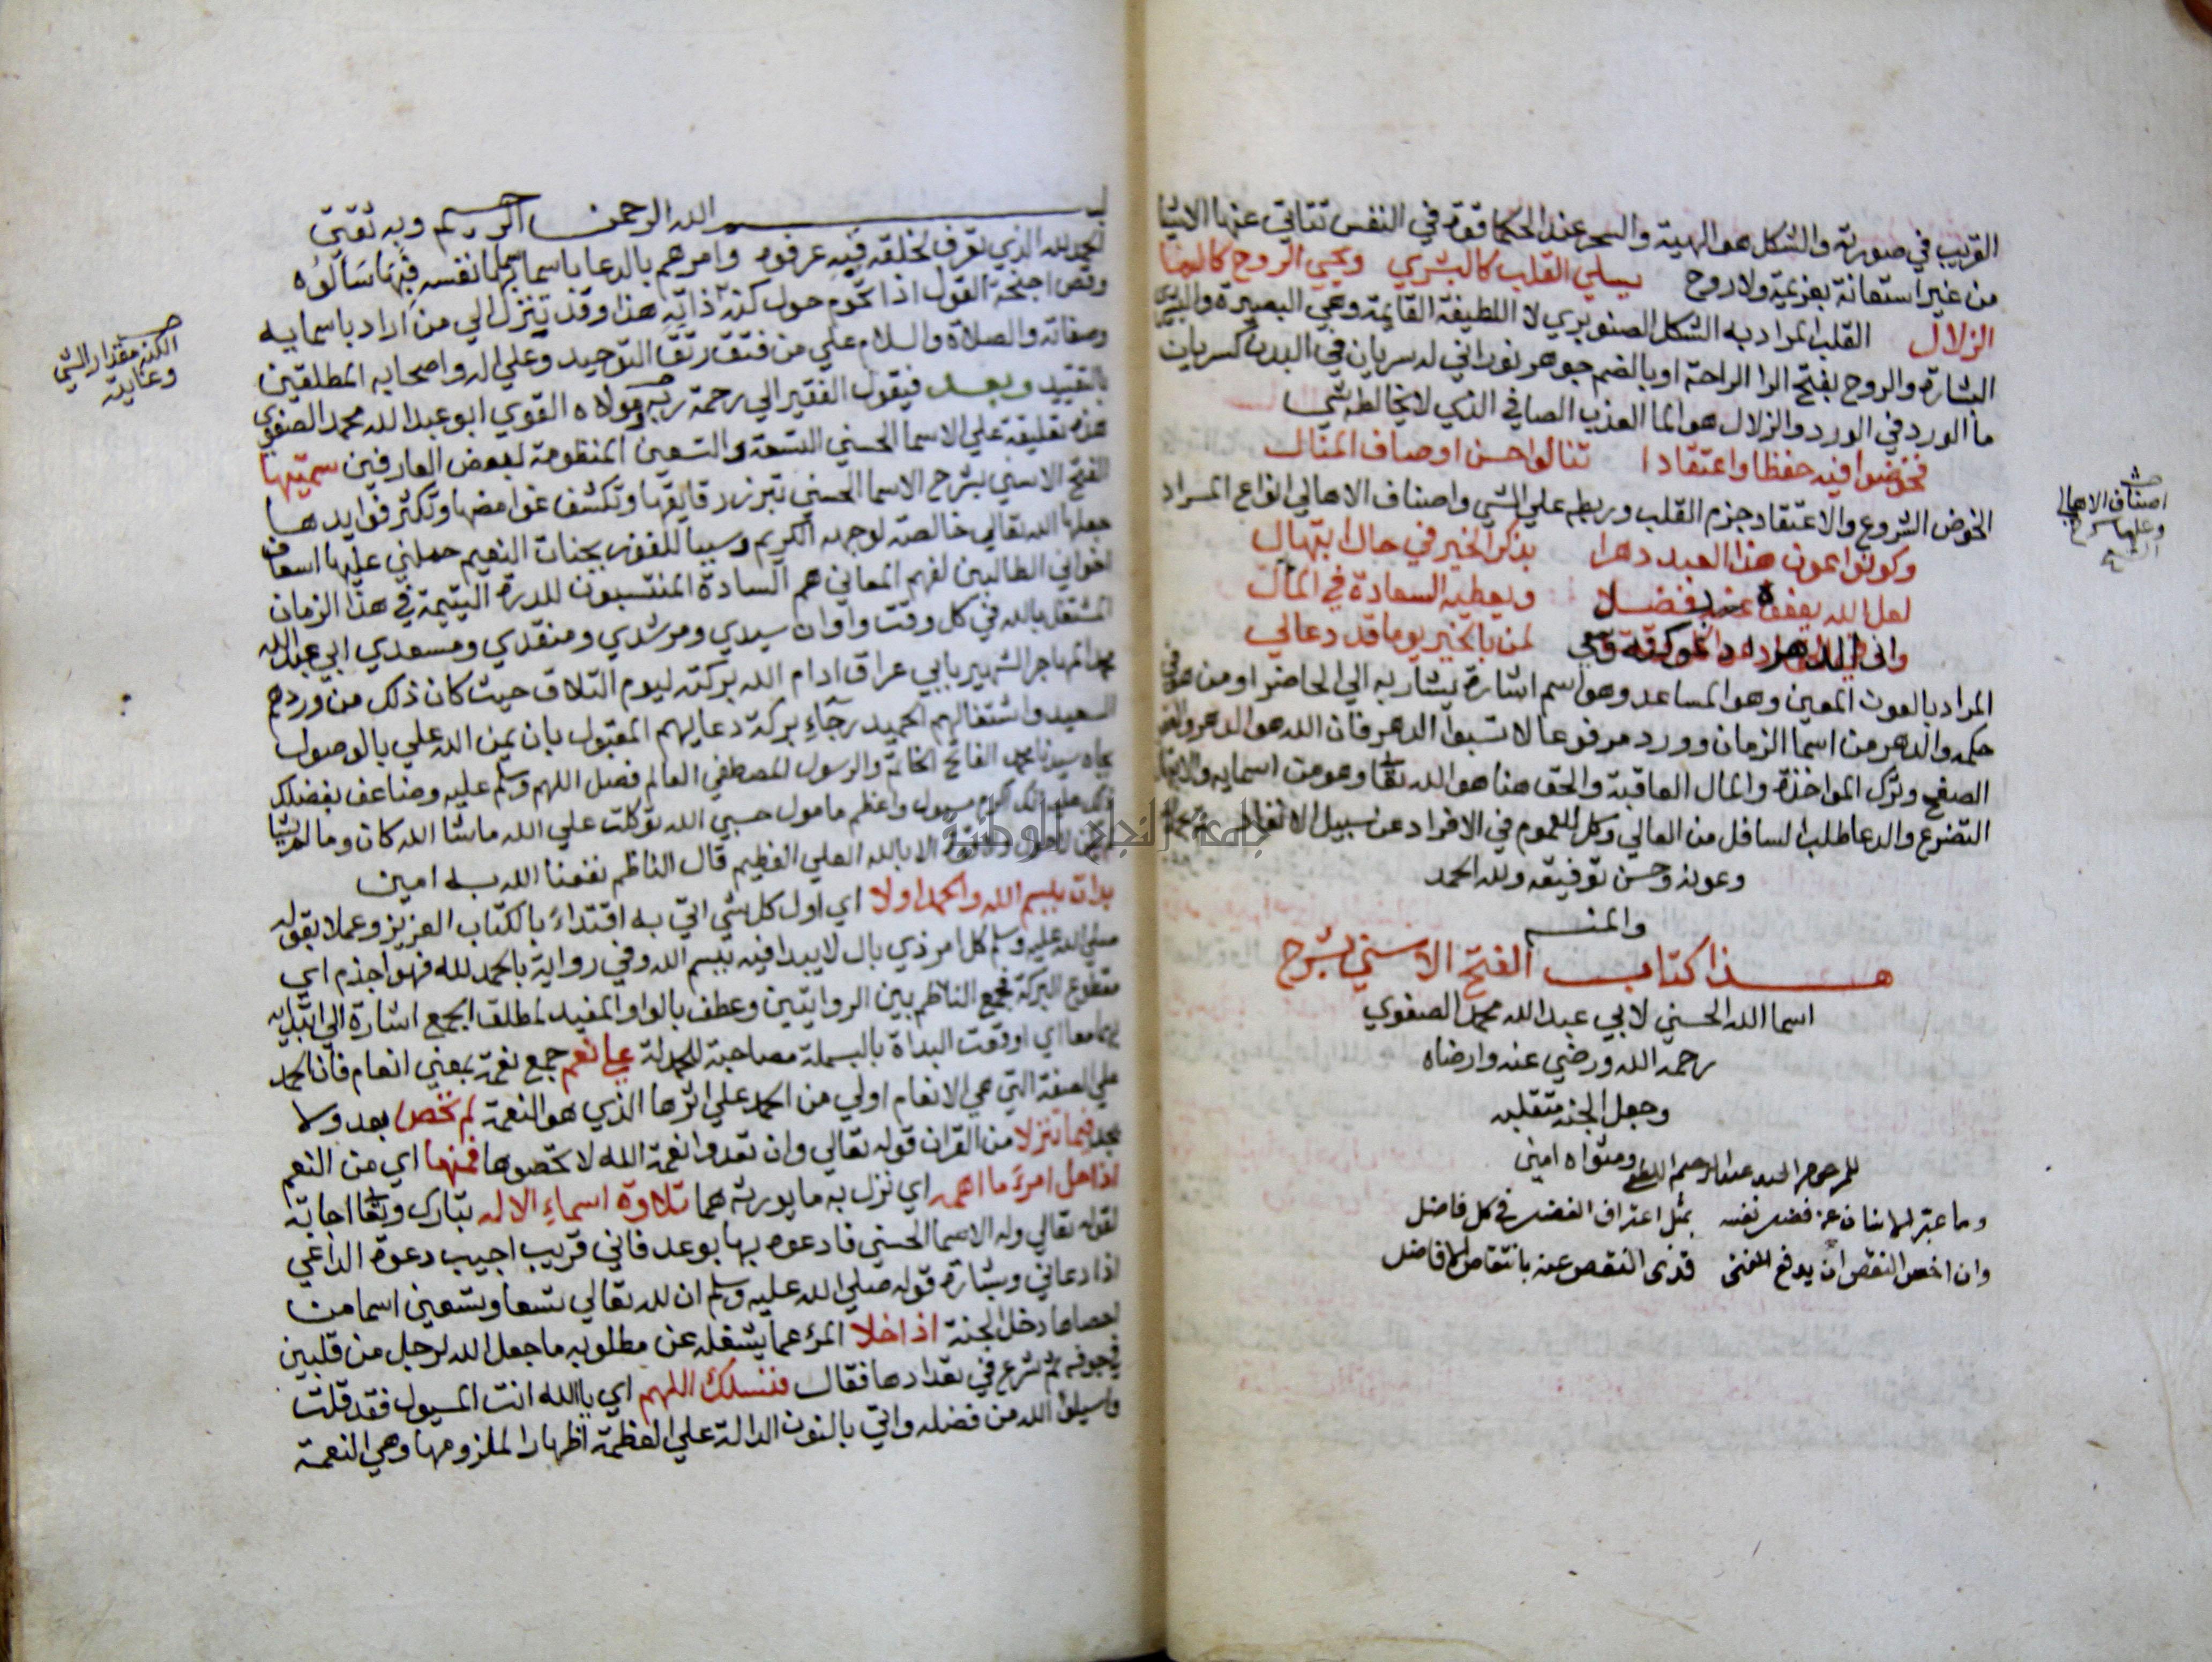 القريب في صورته والشكل هو الهية والسحر عند الحكما قوة في النفس تتاتي عنها الاشيا
من غير استعانة بعزيمة ولا روح يسلي القلب كالبشري ويحيي الروح كالما
الزلال القلب المراد به الشكل الصنوبري لا اللطيفة القايمة وهي البصيرة والبشري
البشارة والروح بفتح الرا الراحة او بالضم جوهر نوراني له سريان في البدن كسريان
ما الورد في الورد والزلال هو الما العذب الصافي الذي لا يخالطه شي
فخوضوا فيه حفظا واعتقادا تنالوا حسن اوصاف المنال
الخوض الشروع والاعتقاد جزم القلب وربطه علي الشي واصناف الاهالي انواع المراد
وكونوا عون هذا العبد دهرا بذكر الخير في حال ابتهال
لعل الله يعفو عنه بفضل ويعطيه السعادة في المال
واني الدهر ادعو كنه وسعي لمن بالخير يوما قد دعا لي
المراد بالعون المعين وهو المساعد وهو اسم اشارة يشار به الي الحاضر او من هو في
حكمه والدهر من اسما الزمان وورد مرفوعا لا تسبوا الدهر فان الله هو الدهر والعفو
الصفح وترك المواخذة والمال العاقبة والحق هنا هو الله تعا وهو من اسمايه والابتهال
التضرع والدعا طلب السافل من العالي وكل للعموم في الافراد عن سبيل الانفراد
وعونه وحسن توفيقه ولله الحمد
والمنه
هذا كتاب الفتح الاسني بشرح
اسما الله الحسني لابي عبد الله محمد الصفوي
رحمه الله ورضي عنه وارضاه
وجعل الجنة متقلبه
ومثواه امين
للمرحوم السيد عبد الرحيم
وما عبر الانسان عن فضل نفسه بمثل اعتراف الفضل في كل فاضل
وان اخس النقص ان يدفع الفتى قذى النقص عنه بانتقاص الافاضل
اصناف الاهالي
وعليها شرح
بسم الله الرحمن الرحيم وبه ثقتي
الحمد لله الذي تعرف لخلقه فبه عرفوه وامرهم بالدعا باسما سما بها نفسه فبها سالوه
وقص اجنحة العقول اذا تحوم حول كنه ذاته هذا وقد يتنزل الي من اراد باسمايه
وصفاته والصلاة والسلام علي من فتق رتق التوحيد وعلي اله واصحابه المطلقين
بالتقييد وبعد فيقول الفقير الي رحمة ربه ومولاه القوي ابو عبد الله محمد الصفوي
هذه تعليقة علي الاسما الحسني التسعة والتسعين المنظومة لبعض العارفين سميتها
الفتح الاسني بشرح الاسما الحسني تبرز دقايقها وتكشف غوامضها وتكثر فوايدها
جعلها الله تعالي خالصة لوجهه الكريم وسببا للفوز بجنات النعيم حملني عليها اسعاف
اخواني الطالبين لفهم المعاني هم السادة المنتسبون للدرة اليتيمة في هذا الزمان
المشتغل بالله في كل وقت واوان سيدي ومرشدي ومنقذي ومسعدي ابي عبد الله
محمد المهاجر الشهير بابي عراق ادام الله بركته ليوم التلاق حيث كان ذلك من وردهم
السعيد واشتغالهم الحميد رجاء بركة دعايهم المقبول بان يمن الله علي بالوصول
بجاه سيدنا محمد الفاتح الخاتم والرسول المصطفي العالم فصل اللهم وسلم عليه وضاعف بفضلك
ذلك عليه انك اكرم مسيول واعظم مامول حسبي الله توكلت علي الله ماشا الله كان وما لم يشا
لم يكن لا حول ولا قوة الا بالله العلي العظيم قال الناظم نفعنا الله به امين
بدات ببسم الله والحمد اولا اي اول كل شي اتي به اقتداء بالكتاب العزيز وعملا بقوله
صلي الله عليه وسلم كل امر ذي بال لا يبدا فيه ببسم الله وفي رواية بالحمد لله فهو اجذم اي
مقطوع البركة فجمع الناظم بين الروايتين وعطف بالواو المفيد لمطلق الجمع اشارة الي
بهما معا اي اوقعت البداة بالبسملة مصاحبة للحمدلة علي نعم جمع نعمة بمعني انعام فان الحمد
علي الصفة التي هي الانعام اولي من الحمد علي اثرها الذي هو النعمة لم تحص بعد ولا
بحد فيما تنزلا من القران قوله تعالي وان تعدوا نعمة الله لا تحصوها فمنها اي من النعم
اذا حل امرء ما اهمه اي نزل به ما يورثه هما تلاوة اسماء الاله تبارك وتعا اجابة
لقوله تعالي ولله الاسما الحسني فادعوه بها بوعد فاني قريب اجيب دعوة الداعي
اذا دعاني وبشارة قوله صلي الله عليه وسلم ان لله تعالي تسعا وتسعين اسما من
احصاها دخل الجنة اذا خلا المرء عما يشغله عن مطلوبه ما جعل الله لرجل من قلبين
في جوفه ثم شرع في تعدادها فقال فنسلك اللهم اي يا الله انت المسيول فقد قلت
واسيلوا الله من فضله واتي بالنون الدالة علي العظمة اظهارا لملزومها وهي النعمة
الكنه مقدار الشي
وغايته
جامعة النجاح الوطنية